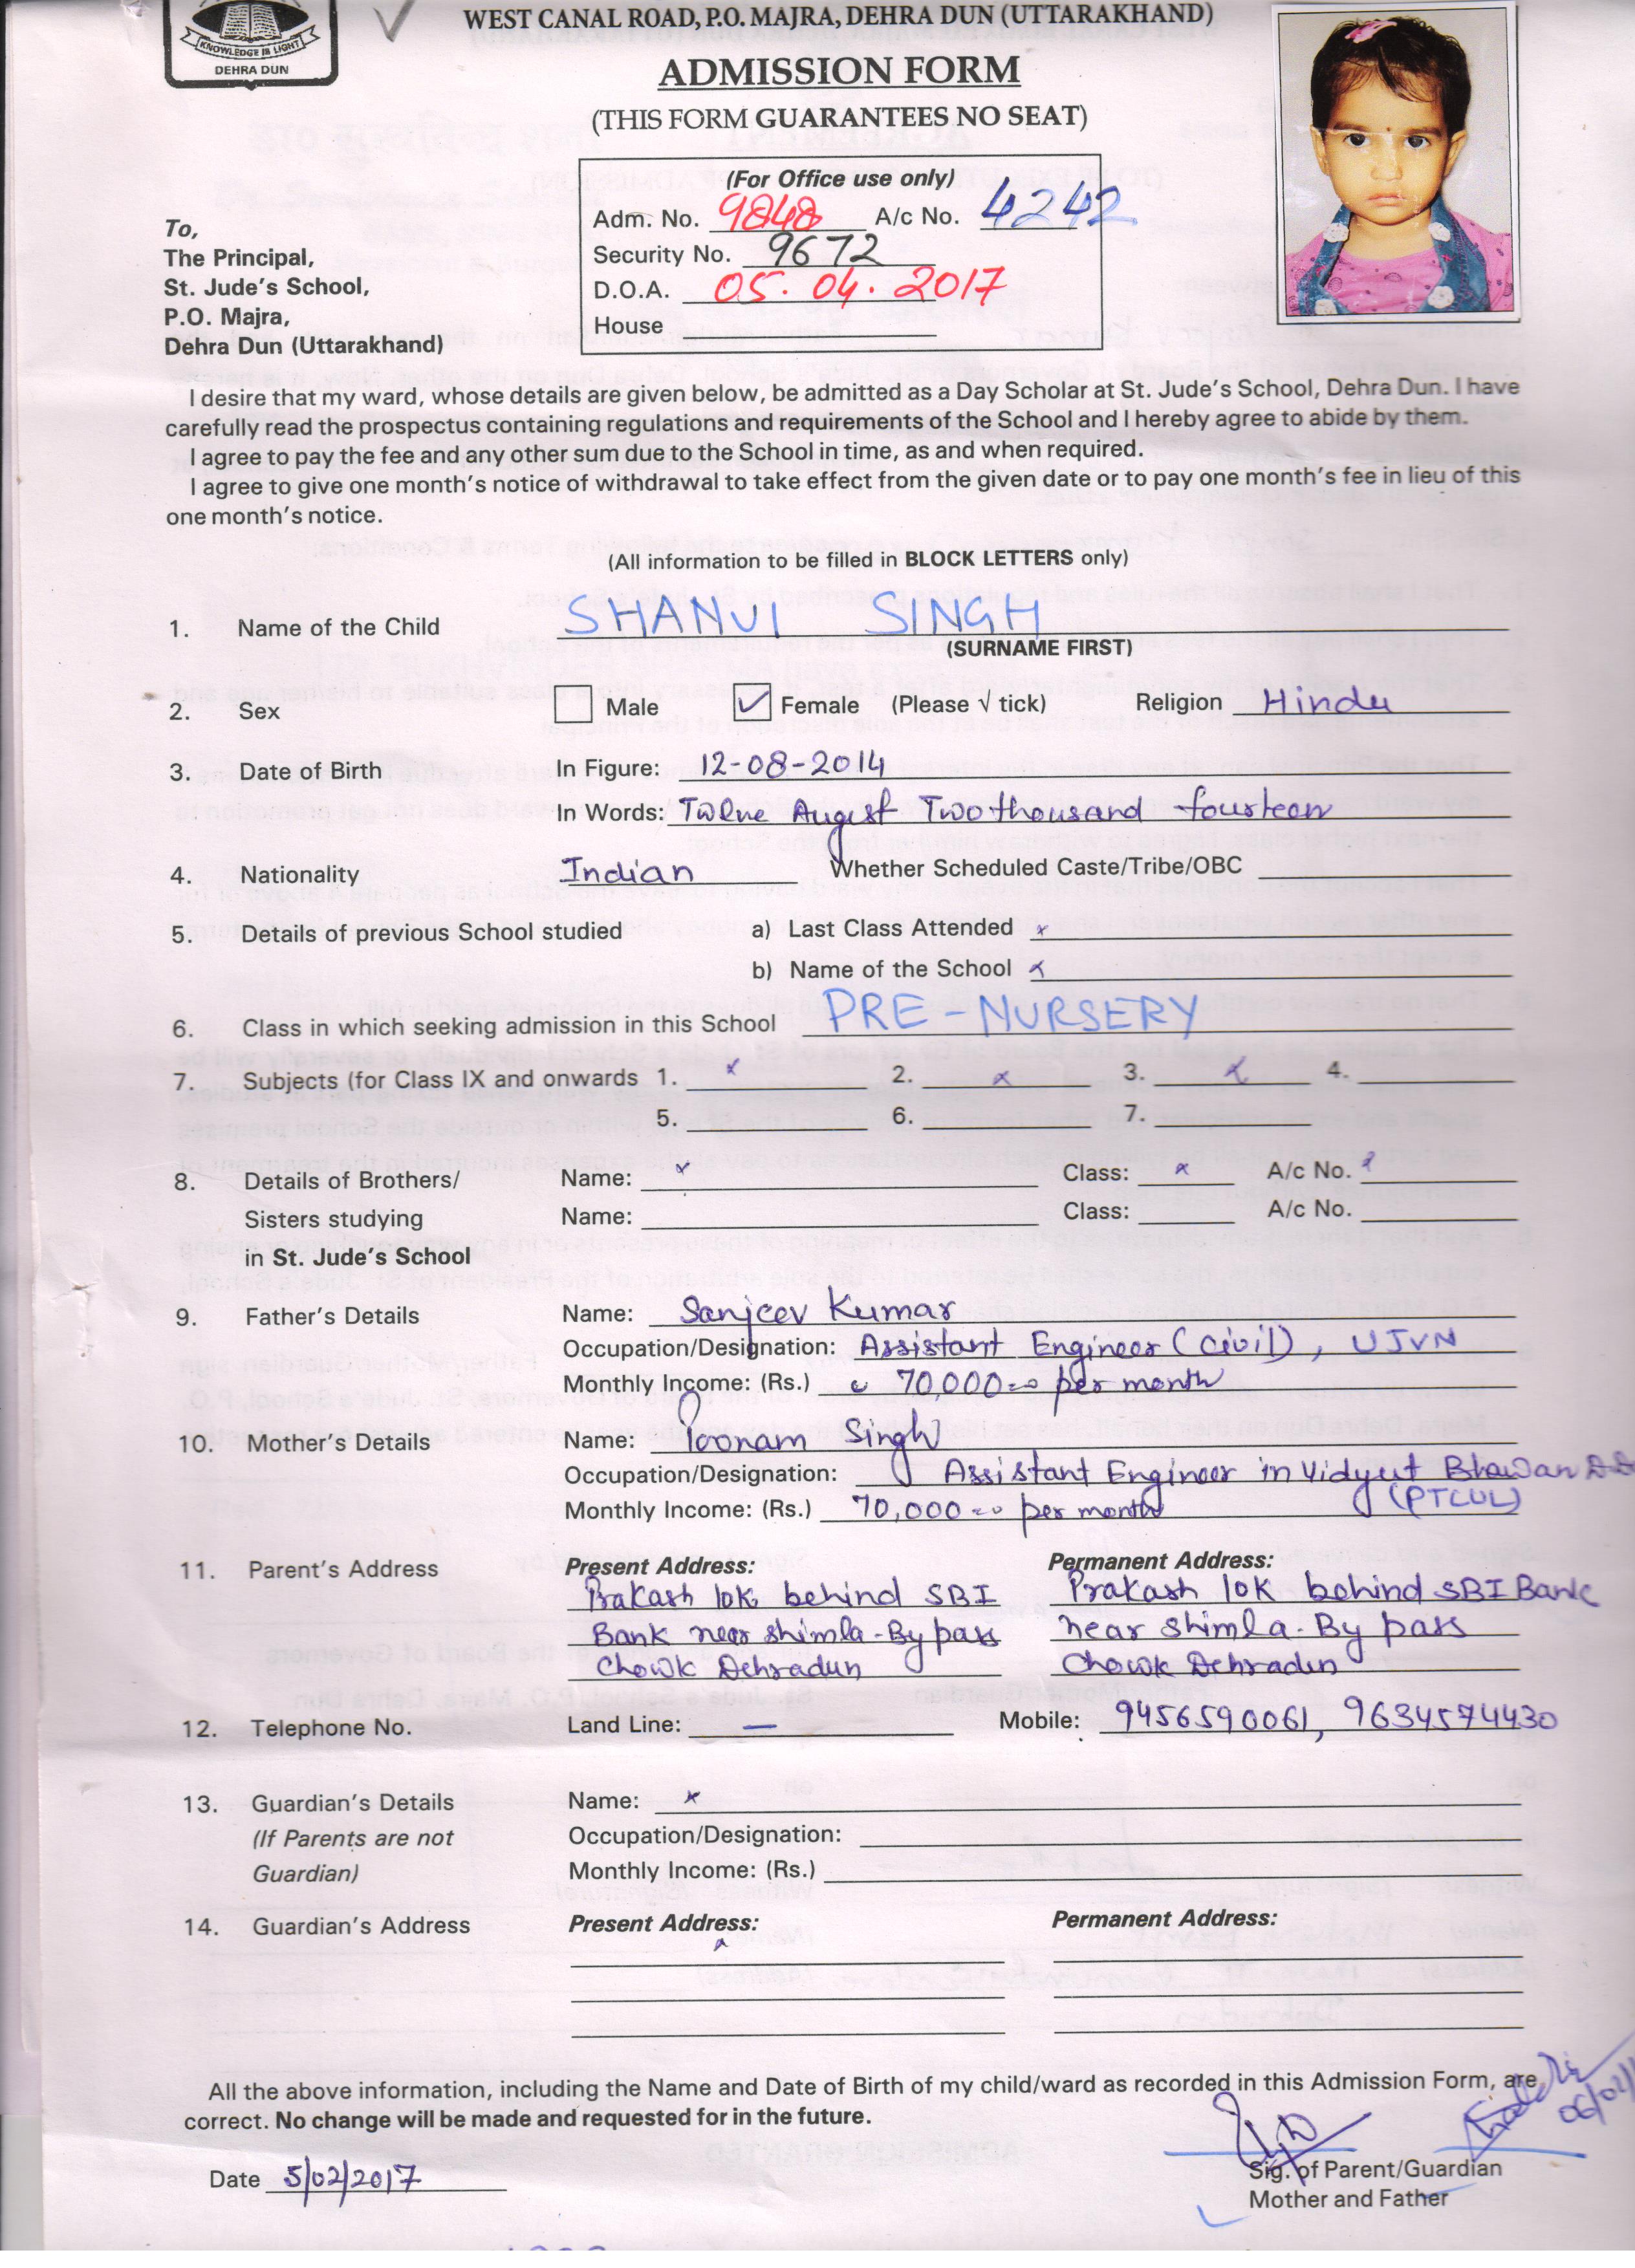 WEST CANAL ROAD, P.O. MAJRA, DEHRA DUN (UTTARAKHAND)
KNOWLEDGE IS LIGHT
DEHRA DUN
ADMISSION FORM
(THIS FORM GUARANTEES NO SEAT)
(For Office use only)
Adm. No. 9848 A/c No. 4242
Security No. 9672
D.O.A. 05.04.2017
House
To,
The Principal,
St. Jude's School,
P.O. Majra,
Dehra Dun (Uttarakhand)
I desire that my ward, whose details are given below, be admitted as a Day Scholar at St. Jude's School, Dehra Dun. I have
carefully read the prospectus containing regulations and requirements of the School and I hereby agree to abide by them.
I agree to pay the fee and any other sum due to the School in time, as and when required.
I agree to give one month's notice of withdrawal to take effect from the given date or to pay one month's fee in lieu of this
one month's notice.
(All information to be filled in BLOCK LETTERS only)
1. Name of the Child SHANVI SINGH
(SURNAME FIRST)
2. Sex Male ✓ Female (Please √ tick) Religion Hindu
3. Date of Birth In Figure: 12-08-2014
In Words: Twelve August Two thousand fourteen
4. Nationality Indian Whether Scheduled Caste/Tribe/OBC
5. Details of previous School studied a) Last Class Attended x
b) Name of the School x
6. Class in which seeking admission in this School PRE-NURSERY
7. Subjects (for Class IX and onwards 1. x 2. x 3. x 4.
5. 6. 7.
8. Details of Brothers/ Name: x Class: x A/c No.
Sisters studying Name: Class: A/c No.
in St. Jude's School
9. Father's Details Name: Sanjeev Kumar
Occupation/Designation: Assistant Engineer (Civil), UJVN
Monthly Income: (Rs.) 70,000=00 per month
10. Mother's Details Name: Poonam Singh
Occupation/Designation: Assistant Engineer in Vidyut Bhawan
Monthly Income: (Rs.) 70,000=00 per month (PTCUL)
11. Parent's Address Present Address: Permanent Address:
Prakash lok behind SBI Prakash lok behind SBI Bank
Bank near shimla-By pass near shimla-By pass
Chowk Dehradun Chowk Dehradun
12. Telephone No. Land Line: — Mobile: 9456590061, 9634574430
13. Guardian's Details Name: x
(If Parents are not Occupation/Designation:
Guardian) Monthly Income: (Rs.)
14. Guardian's Address Present Address: Permanent Address:
x
All the above information, including the Name and Date of Birth of my child/ward as recorded in this Admission Form, are
correct. No change will be made and requested for in the future.
Date 5/02/2017
Sig. of Parent/Guardian
Mother and Father